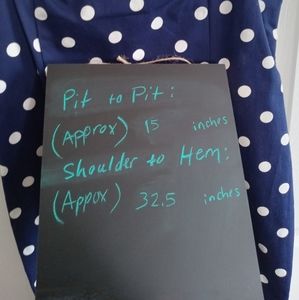 Pit to Pit:
(Approx) 15 inches
Shoulder to Hem:
(Appox) 32.5 inches